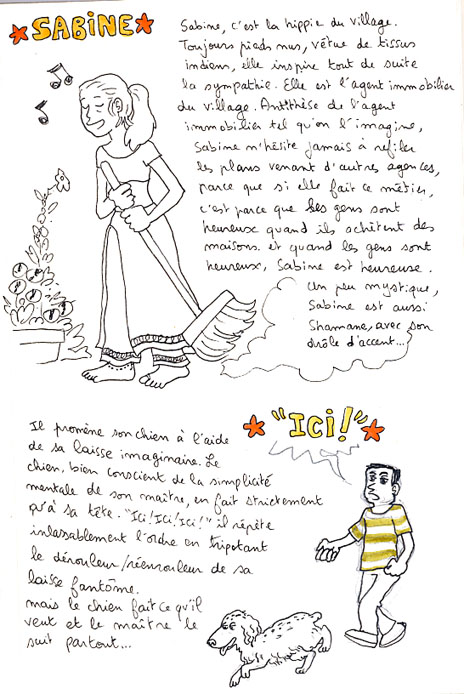 SABINE
Sabine, c'est la hippie du village.
Toujours pieds nus, vêtue de tissus
indiens, elle inspire tout de suite
la sympathie. Elle est l'agent immobilier
du village. Antithèse de l'agent
immobilier tel qu'on l'imagine,
Sabine n'hésite jamais à refiler
les plans venant d'autres agences,
parce que si elle fait ce métier,
c'est parce que les gens sont
heureux quand ils achètent des
maisons. et quand les gens sont
heureux, Sabine est heureuse.
Un peu mystique,
Sabine est aussi
Shamane, avec son
drôle d'accent...
"Ici!"
Il promène son chien à l'aide
de sa laisse imaginaire. Le
chien, bien conscient de la simplicité
mentale de son maître, en fait strictement
qu'à sa tête. "Ici! Ici! Ici!" il répète
inlassablement l'ordre en tripotant
le dérouleur/réenrouleur de sa
laisse fantôme.
mais le chien fait ce qu'il
veut et le maître le
suit partout...